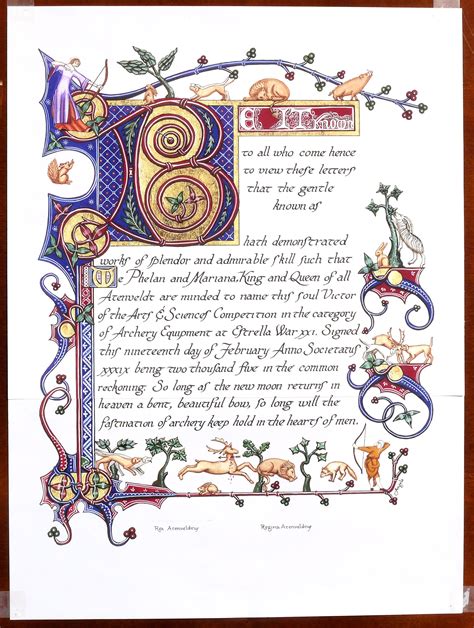 Be it known
to all who come hence
to view these letters
that the gentle
known as
hath demonstrated
works of splendor and admirable skill such that
We Phelan and Mariana, King and Queen of all
Atenveldt are minded to name this soul Victor
of the Arts & Sciences Competition in the category
of Archery Equipment at Estrella War XXI. Signed
this nineteenth day of February Anno Societatus
XXXIX being two thousand five in the common
reckoning. So long as the new moon returns in
heaven a bent, beautiful bow, so long will the
fastination of archery keep hold in the hearts of men.
Rex Atenveldng Regina Atenveldng